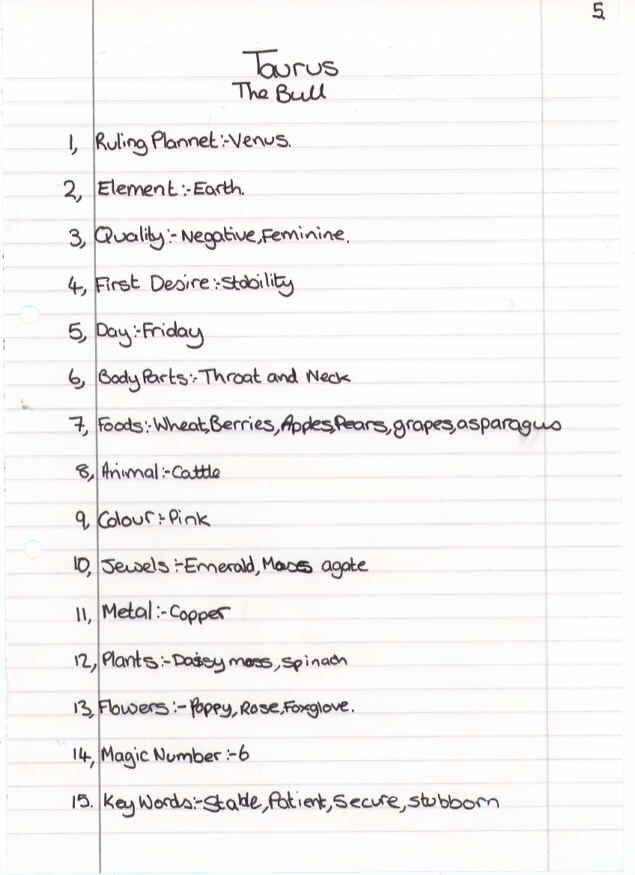 5
Taurus
The Bull
1, Ruling Plannet:-Venus.
2, Element:-Earth.
3, Quality:- Negative, Feminine.
4, First Desire:-Stability
5, Day:-Friday
6, Body Parts:- Throat and Neck
7, Foods:-Wheat, Berries, Apples, Pears, grapes, asparagus
8, Animal:-Cattle
9, Colour:-Pink
10, Jewels:-Emerald, Moss agate
11, Metal:-Copper
12, Plants:-Daisey moss, spinach
13, Flowers:-Poppy, Rose, Foxglove.
14, Magic Number:-6
15. Key Words:-Stable, Patient, Secure, stubborn